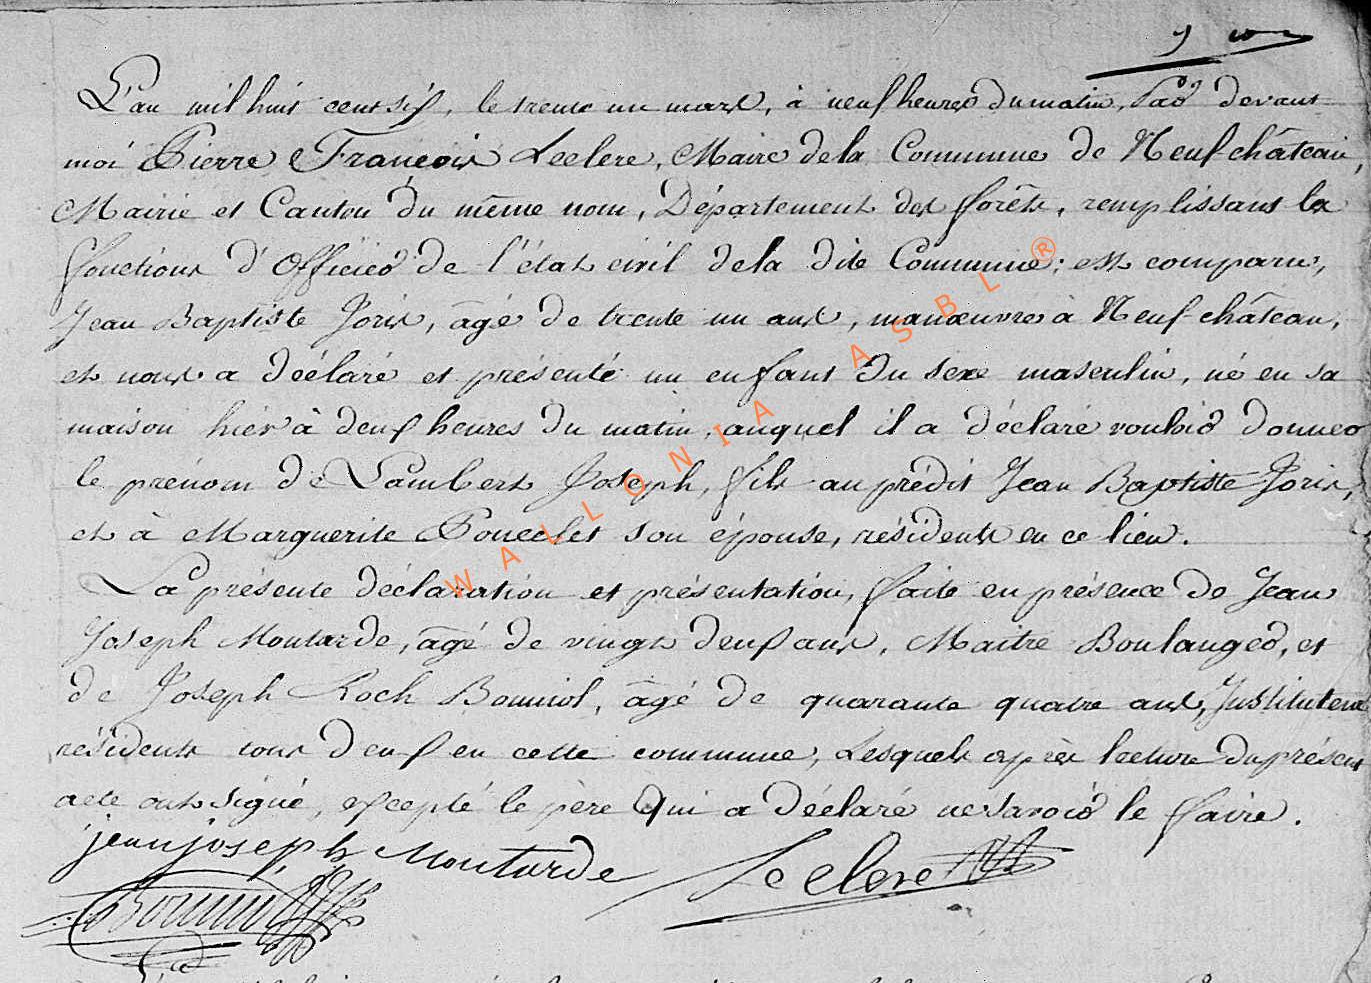 L'an mil huit cent six, le trente un mars, à neuf heures du matin, Par devant
moi Pierre François Leclere, Maire de la Commune de Neufchâteau,
Mairie et Canton du même nom, Département des forêts, remplissant les
fonctions d'Officier de l'état civil de la dite Commune; est comparu,
Jean Baptiste Joris, âgé de trente un ans, manœuvre à Neufchâteau,
et nous a déclaré et présenté un enfant du sexe masculin, né en sa
maison hier à deux heures du matin, auquel il a déclaré vouloir donner
le prénom de Lambert Joseph, fils au prédit Jean Baptiste Joris,
et à Marguerite Poncelet son épouse, résidents en ce lieu.
La présente déclaration et présentation, faite en présence de Jean
Joseph Moutarde, âgé de vingt deux ans, Maitre Boulanger, et
de Joseph Roch Bouniol, âgé de quarante quatre ans, Instituteur
résidents tous deux en cette commune, Lesquels après lecture du présent
acte ont signé, excepté le père qui a déclaré ne savoir le faire.
jean joseph Moutarde Leclere
WALLONIA ASBL ®